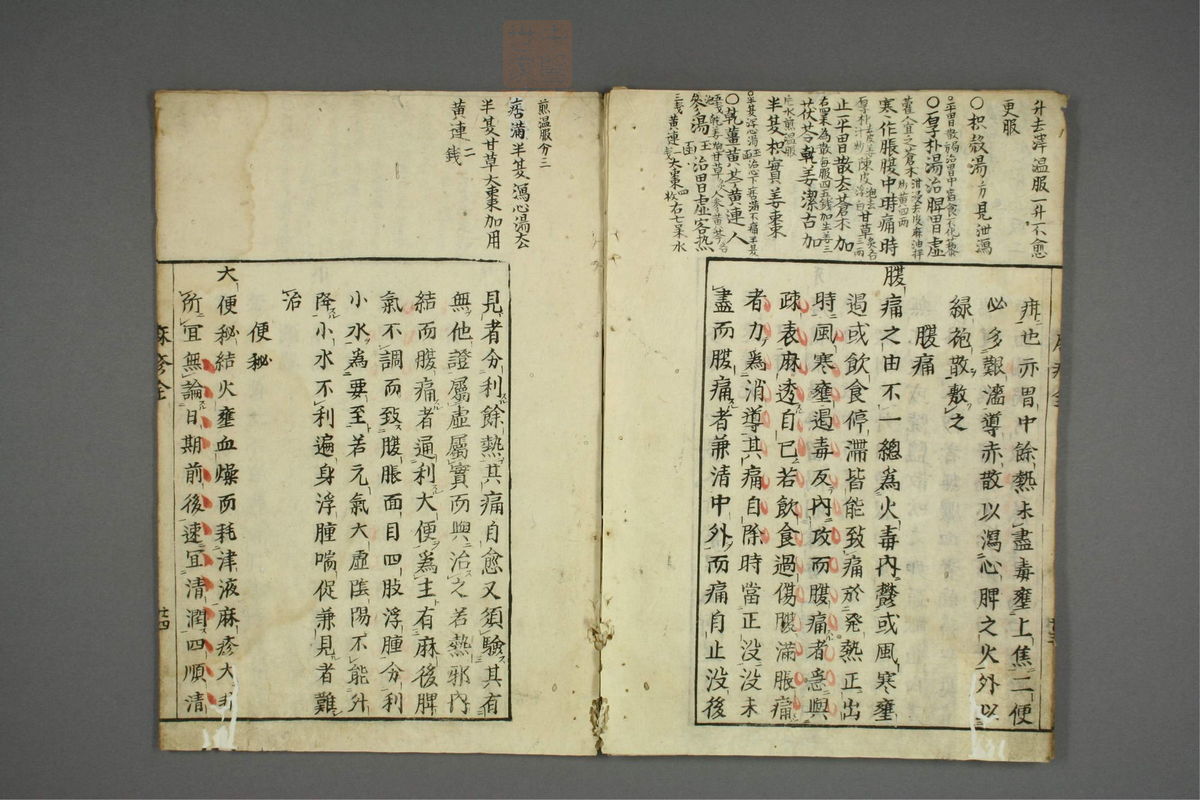 升去滓温服一升不愈
更服
○枳殼湯方見泄瀉
○平胃散
○厚朴湯治脾胃虚
寒作脹腹中時痛時
陳皮
甘草
正平胃散去蒼木加
茯苓乾姜潔古加
右四味為散每服四五錢加生姜三
半夏枳實姜棗
○半夏瀉心湯
○乾薑黄芩黄連人
參湯玉函治胃虚客熱
三錢黄連一大棗四枚右七味水
煎温服分三
痞滿半夏瀉心湯去
半夏甘草大棗加用
黄連二錢
疳也亦胃中餘熱未盡毒壅上焦二便
必多艱濇導赤散以瀉心脾之火外以
綠袍散敷之
腹痛
腹痛之由不一總為火毒内鬱或風寒壅
遏或飲食停滯皆能致痛於発熱正出
時風寒壅遏毒反内攻而腹痛者急與
疎表麻透自已若飲食過傷腹滿脹痛
者力為消導其痛自除時當正没没未
盡而腹痛者兼清中外而痛自止没後
見者分利餘熱其痛自愈又須驗其有
無他證屬虚屬實而與治之若熱邪内
結而腹痛者通利大便為主有麻後脾
氣不調而致腹脹面目四肢浮腫分利
小水為要至若元氣大虚陰陽不能升
降小水不利遍身浮腫喘促兼見者難
治
便秘
大便秘結火壅血燥而耗津液麻疹大
所冝無論日期前後速冝清潤四順清
麻疹全
廿四